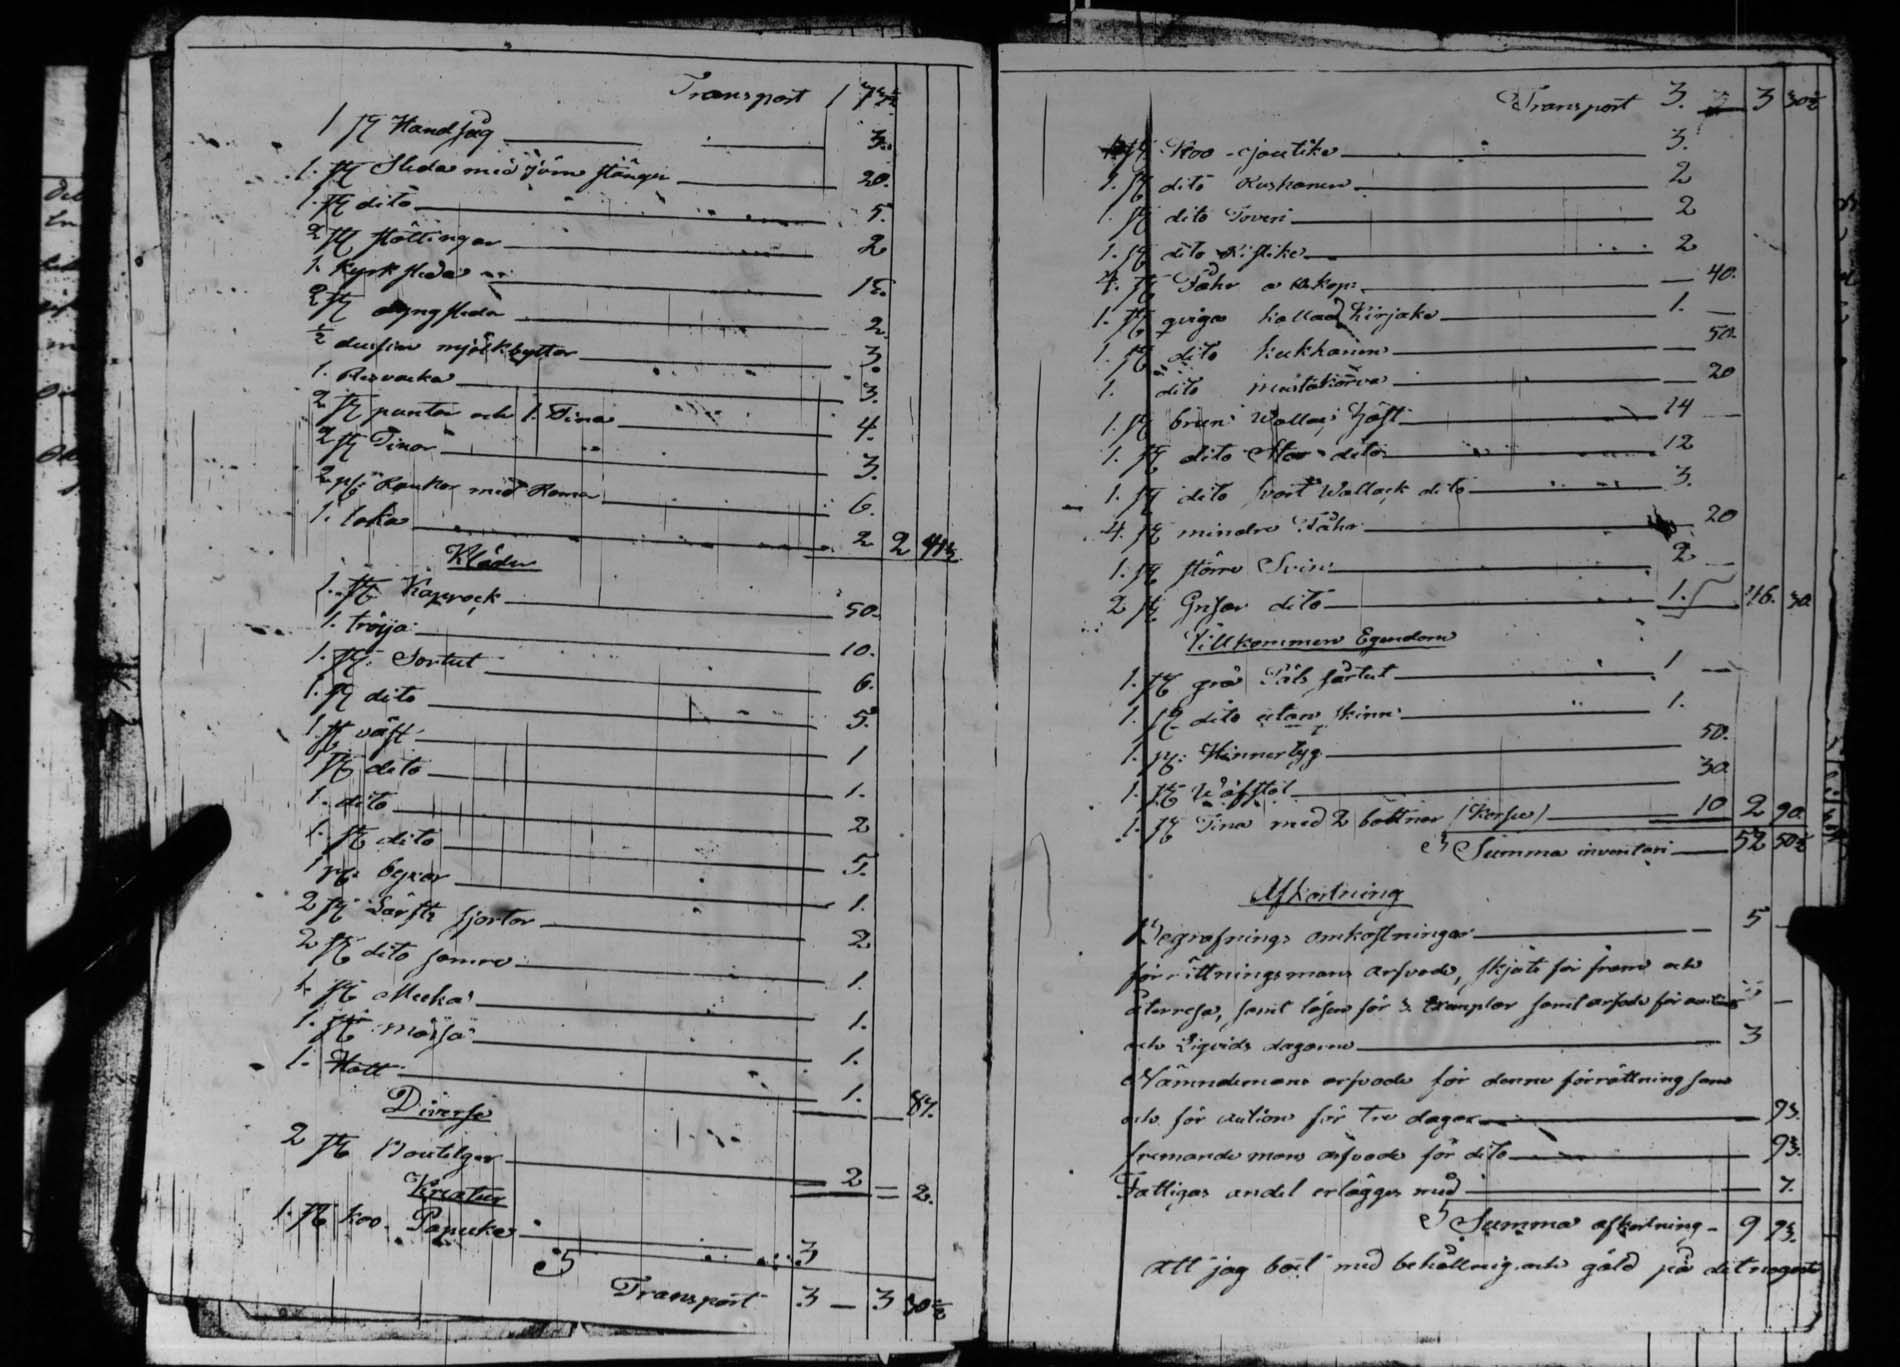 Transport 1 77½
1 st Handsåg 3.
1. st Sleda med Järn stänger 20.
1. st dito 5.
2 st stöttingar 2
1. Kyrk sleda 15.
2 st dyng sleda 2
½ dussin mjölkbyttor 3.
1. Resvacka 3.
2 st puntar och 1. Tina 4.
2 st Tinor 3.
2 st Rankor med Rama 6.
1. loka 2 2 41½
Kläder
1. st Kaprock 50.
1. tröija 10.
1. st. Sortut 6.
1. st dito 5.
1. st väst 1
1 st dito 1.
1. dito 2
1. st dito 5.
1 st. byxor 1.
2 st Lärfts sjortor 2
2 st dito samre 1.
1. st Mekko 1.
1. st mössa 1.
1. Hatt 1. 87.
Diverse
2 st Boutelger 2 2.
Kreatur
1. st koo Papuke 3
Transport 3 – 3 30½
Transport 3. 3 30½
1 st Koo 3.
1. st dito Ruskanen 2
1. st dito Toveri 2
1. st dito 2
4. st Fåhr a 10. kop: 40.
1. st qviga kallad Kirjake 1. –
1. st dito kukkanen 50.
1. dito mustakorva 20
1. st brun Wallac Häst 14 –
1. st dito Stoo dito 12
1. st dito svart Wallack dito 3.
4. st mindre Fåhr 20
1. st större Svin 2 –
2 st Grisar dito 1. 46. 30.
Tillkommen Egendom
1. st grå Päls sårtut 1 –
1. st dito utan skinn 1.
1. st. Kinnertyg 50.
1. st Wäfstol 30.
1. st Tina med 2 bottnar (Korsu) 10 2 90.
Summa inventari 52 50½
Afkortning
Begrafnings omkostningar 5 –
förrättningsmans arfvode, skjuts för fram och
återresa, samt lösen för 3. Exemplar samt arfode för auction
och Liqvids dagarne 3
Nämndemans arfvode för denne förrättning samt
och för aution för tre dagar 93.
fremande mans arfvode för dito 93.
Fattigas andel erlägges med 7.
Summa afkortning 9 93.
Att jag boet med behållnig och gäld på det nogaste